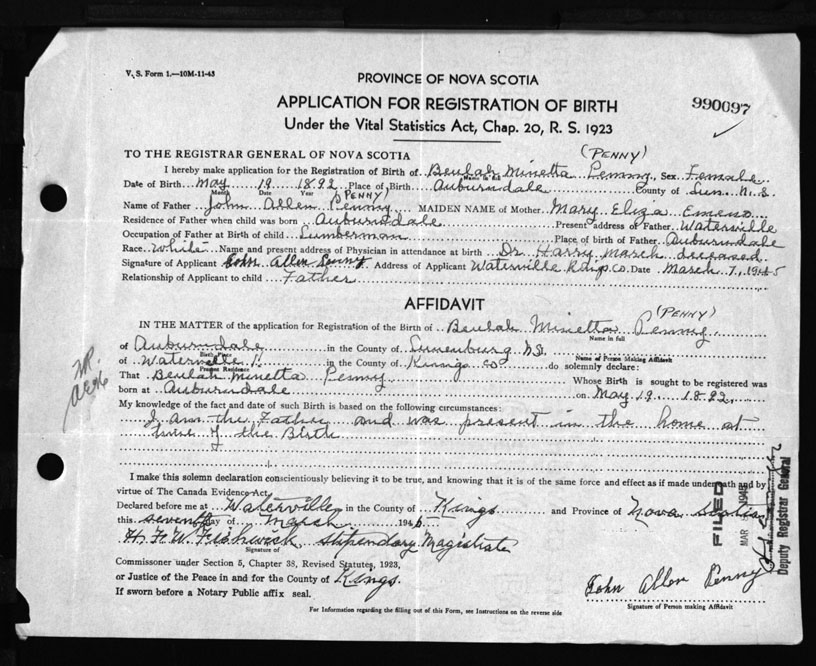 V. S. Form 1.—10M-11-43
PROVINCE OF NOVA SCOTIA
APPLICATION FOR REGISTRATION OF BIRTH
990097
Under the Vital Statistics Act, Chap. 20, R. S. 1923
(PENNY)
TO THE REGISTRAR GENERAL OF NOVA SCOTIA
I hereby make application for the Registration of Birth of Beulah Minetta Penny, Sex Female
Date of Birth May 19 1892 Place of Birth Auburndale County of Lun. N.S.
Month Date Year
PENNY
Name of Father John Allen Penny MAIDEN NAME of Mother Mary Eliza
Residence of Father when child was born Auburndale Present address of Father Waterville
Occupation of Father at Birth of child Lumberman Place of birth of Father Auburndale
Race White Name and present address of Physician in attendance at birth Dr Harry March deceased
Signature of Applicant John Allen Penny Address of Applicant Waterville Kings Co. Date March 7, 194
Relationship of Applicant to child Father
AFFIDAVIT
(PENNY)
IN THE MATTER of the application for Registration of the Birth of Beulah Minetta Penny
Name in full
of Auburndale in the County of Lunenburg NS.
Birth Place Name of Person Making Affidavit
of Waterville in the County of Kings Co do solemnly declare:
Present Residence
That Beulah Minetta Penny Whose Birth is sought to be registered was
born at Auburndale on May 19 1892
My knowledge of the fact and date of such Birth is based on the following circumstances:
I am the Father and was present in the home at
time of the Birth
I make this solemn declaration conscientiously believing it to be true, and knowing that it is of the same force and effect as if made under oath and by
virtue of The Canada Evidence Act.
Declared before me at Waterville in the County of Kings and Province of Nova Scotia
this seventh day of March 194
H. F. W. Fishwick stipendary Magistrate
Signature of
Commissoner under Section 5, Chapter 38, Revised Statutes, 1923,
or Justice of the Peace in and for the County of Kings.
If sworn before a Notary Public affix seal.
John Allen Penny
Signature of Person making Affidavit
For Information regarding the filling out of this Form, see Instructions on the reverse side
FILED
MAR
Deputy Registrar General